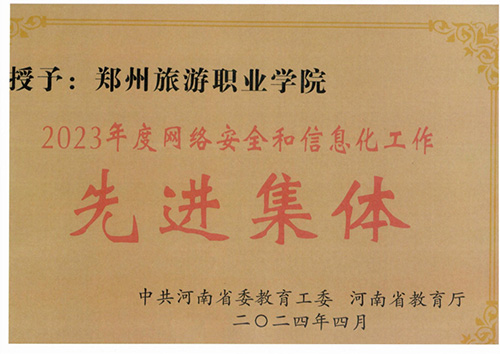 授予：郑州旅游职业学院
2023年度网络安全和信息化工作
先进集体
中共河南省委教育工委 河南省教育厅
二〇二四年四月